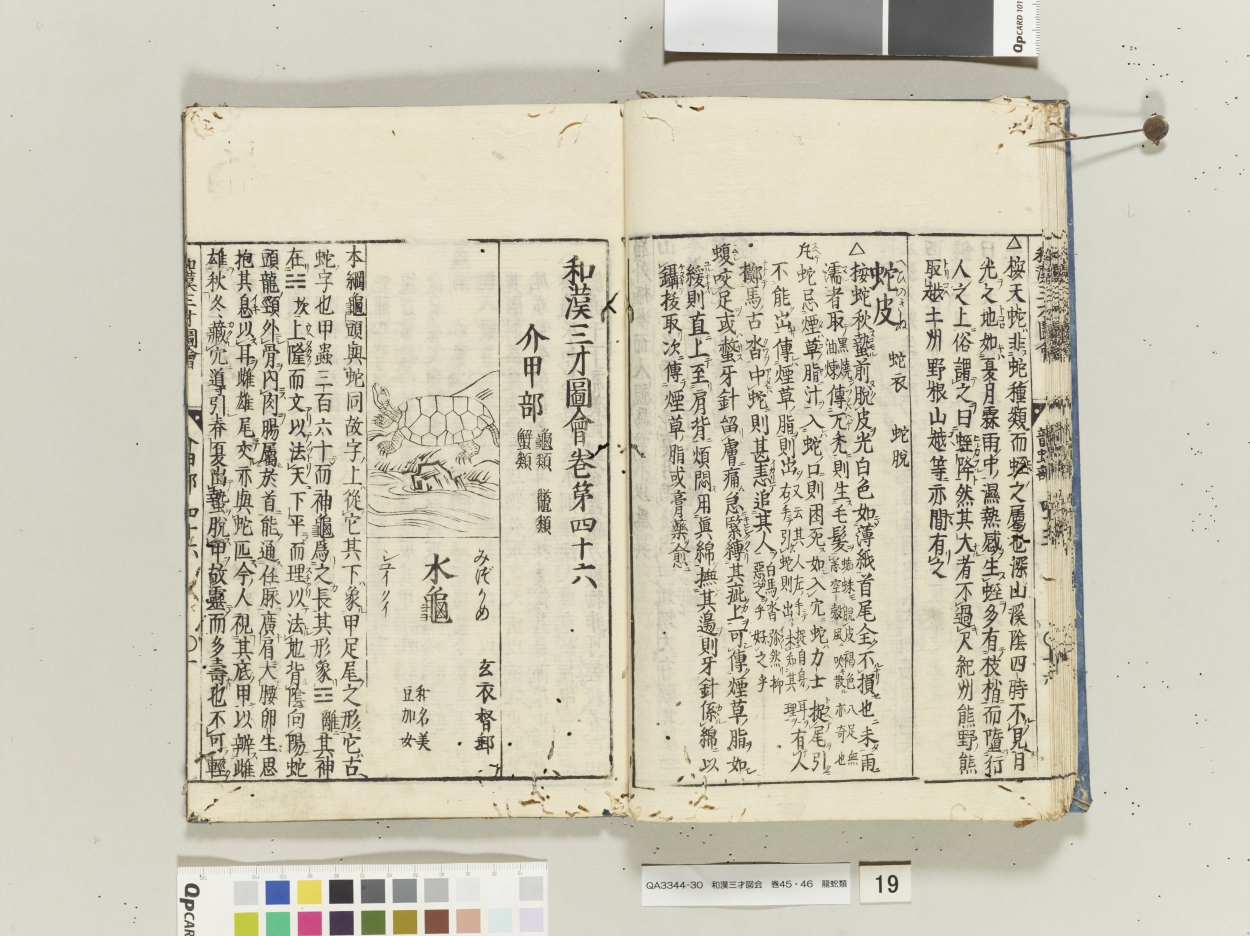 △按天蛇非蛇種類而蛭之屬也深山溪陰四時不見日月
光之地如夏月霖雨中濕熱感生蛭多有枝梢而墮行
人之上俗謂之曰蛭降然其大者不過尺紀州熊野熊
取越土州野根山越等亦間有之
蛇皮 へびのきぬ 蛇衣 蛇脫
△按蛇秋蟄前脫皮光白色如薄紙首尾全不損也未雨
濡者取黑燒油煉傳禿則生毛髮
凡蛇忌煙草脂汁入蛇口則困死如入穴蛇力士捉尾引
不能出傳煙草脂則出
擲馬古沓中蛇則甚恚追其人
蝮咬足或螫牙針留膚痛急緊縛其疵上可傳煙草脂如
緩則直上至肩背煩悶用眞綿撫其邊則牙針係綿以
鑷拔取次傳煙草脂或膏藥愈
和漢三才圖會卷第四十六
介甲部
龜類 鼈類
蟹類
水龜
みづかめ
シユイクイ
玄衣督郵
和名美
豆加女
本綱龜頭與蛇同故字上從它其下象甲足尾之形它古
蛇字也甲蟲三百六十而神龜爲之長其形象☲離其神
在☵坎上隆而文以法天下平而理以法地背陰向陽蛇
頭龍頸外骨內肉腸屬於首能通任脈廣肩大腰卵生思
抱其息以耳雌雄尾交亦與蛇匹今人視其底甲以辨雌
雄秋冬藏穴導引春夏出蟄脫甲故靈而多壽也不可輕
QPCARD 101
QA3344-30 和漢三才図会 巻45・46 龍蛇類
19
QPCARD